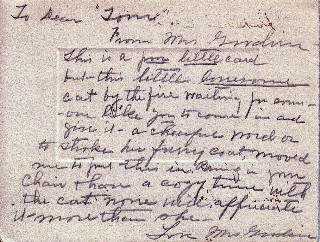 To Dear "Tom".
From Mrs Goodwin
This is a poor little card
but this little lonesome
cat by the fire waiting for some-
one like you to come in and
give it a cheerful word or
to stroke his furry coat, moved
me to put this in. Bring in your
chair & have a cozy time with
the cat none will appreciate
it more than she.
Love Mrs Goodwin